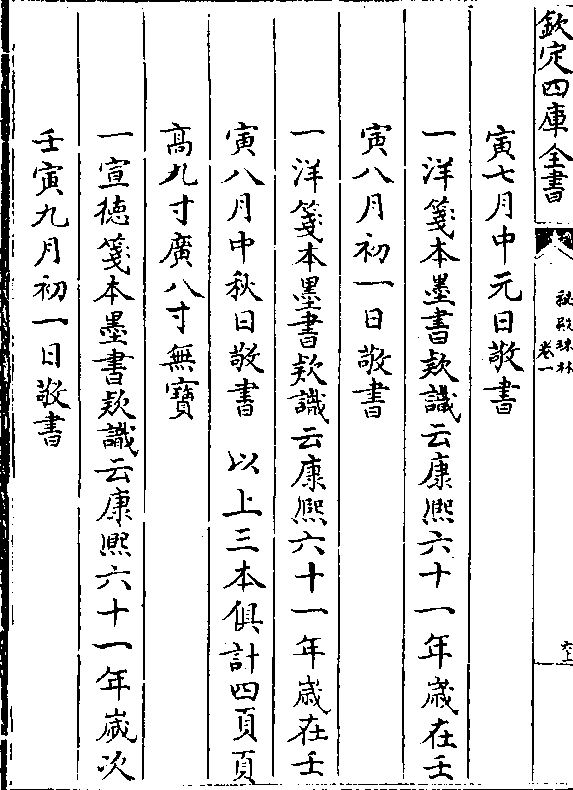 欽定四庫全書
秘殿珠林
卷一
六上
寅七月中元日敬書
一洋箋本墨書欵識云康熙六十一年歳在壬
寅八月初一日敬書
一洋箋本墨書欵識云康熙六十一年歳在壬
寅八月中秋日敬書　以上三本俱計四頁頁
高九寸廣八寸無寳
一宣徳箋本墨書欵識云康熙六十一年歳次
壬寅九月初一日敬書